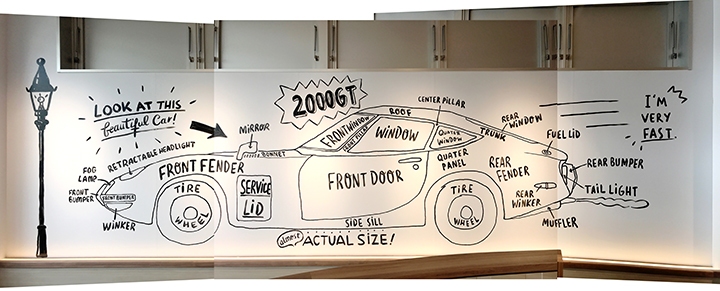 LOOK AT THIS
beautiful Car!
2000GT
I'M
VERY
FAST.
MIRROR
RETRACTABLE HEADLIGHT
FOG
LAMP
FRONT
BUMPER
FRONT BUMPER
WINKER
FRONT FENDER
BONNET
TIRE
WHEEL
SERVICE
LID
FRONT WINDOW
FRONT PILLAR
ROOF
WINDOW
CENTER PILLAR
QUATER
WINDOW
QUATER
PANEL
FRONT DOOR
SIDE SILL
almost
ACTUAL SIZE!
TRUNK
REAR
WINDOW
FUEL LID
REAR
FENDER
TIRE
WHEEL
REAR
WINKER
REAR BUMPER
TAIL LIGHT
MUFFLER